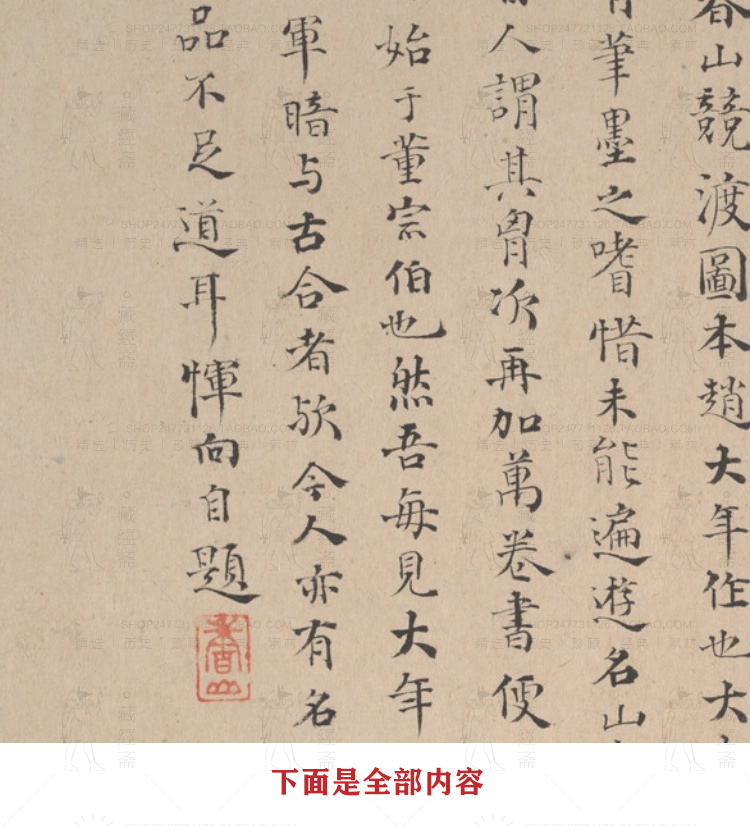 春山競渡圖本趙大年作也大
筆墨之嗜惜未能遍遊名山
人謂其胷次再加萬卷書便
始于董宗伯也然吾每見大年
軍暗与古合者欤今人亦有名
品不足道耳惲向自題
下面是全部内容